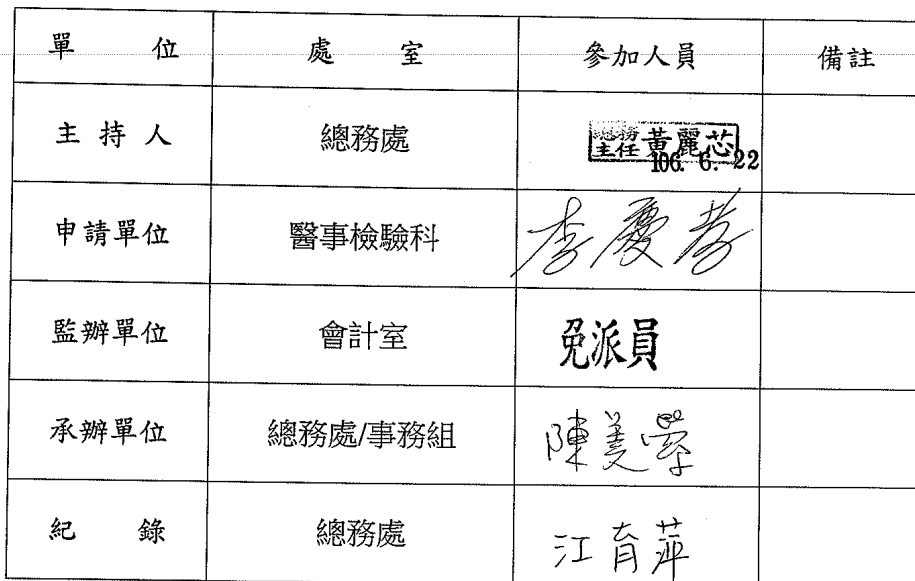 單 位 處 室 參加人員 備註
主持人 總務處 總務主任 黃麗芯
106. 6. 22
申請單位 醫事檢驗科 李慶孝
監辦單位 會計室 免派員
承辦單位 總務處/事務組 陳美
紀 錄 總務處 江育萍